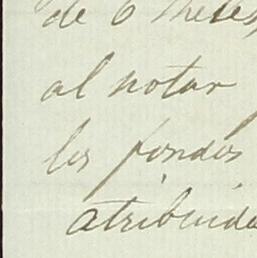 de 6 meses,
al notar
los fondos
atribuida